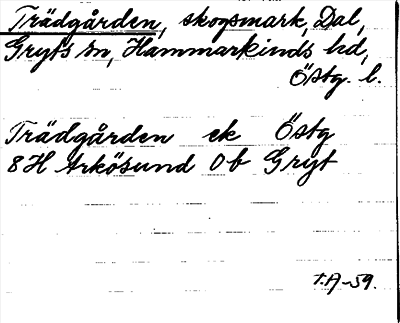 Trädgården, skogsmark, Dal,
Gryts sn, Hammarkinds hd,
Östg. l.
Trädgården ek Östg
8H Arkösund 0b Gryt
T.A-59.